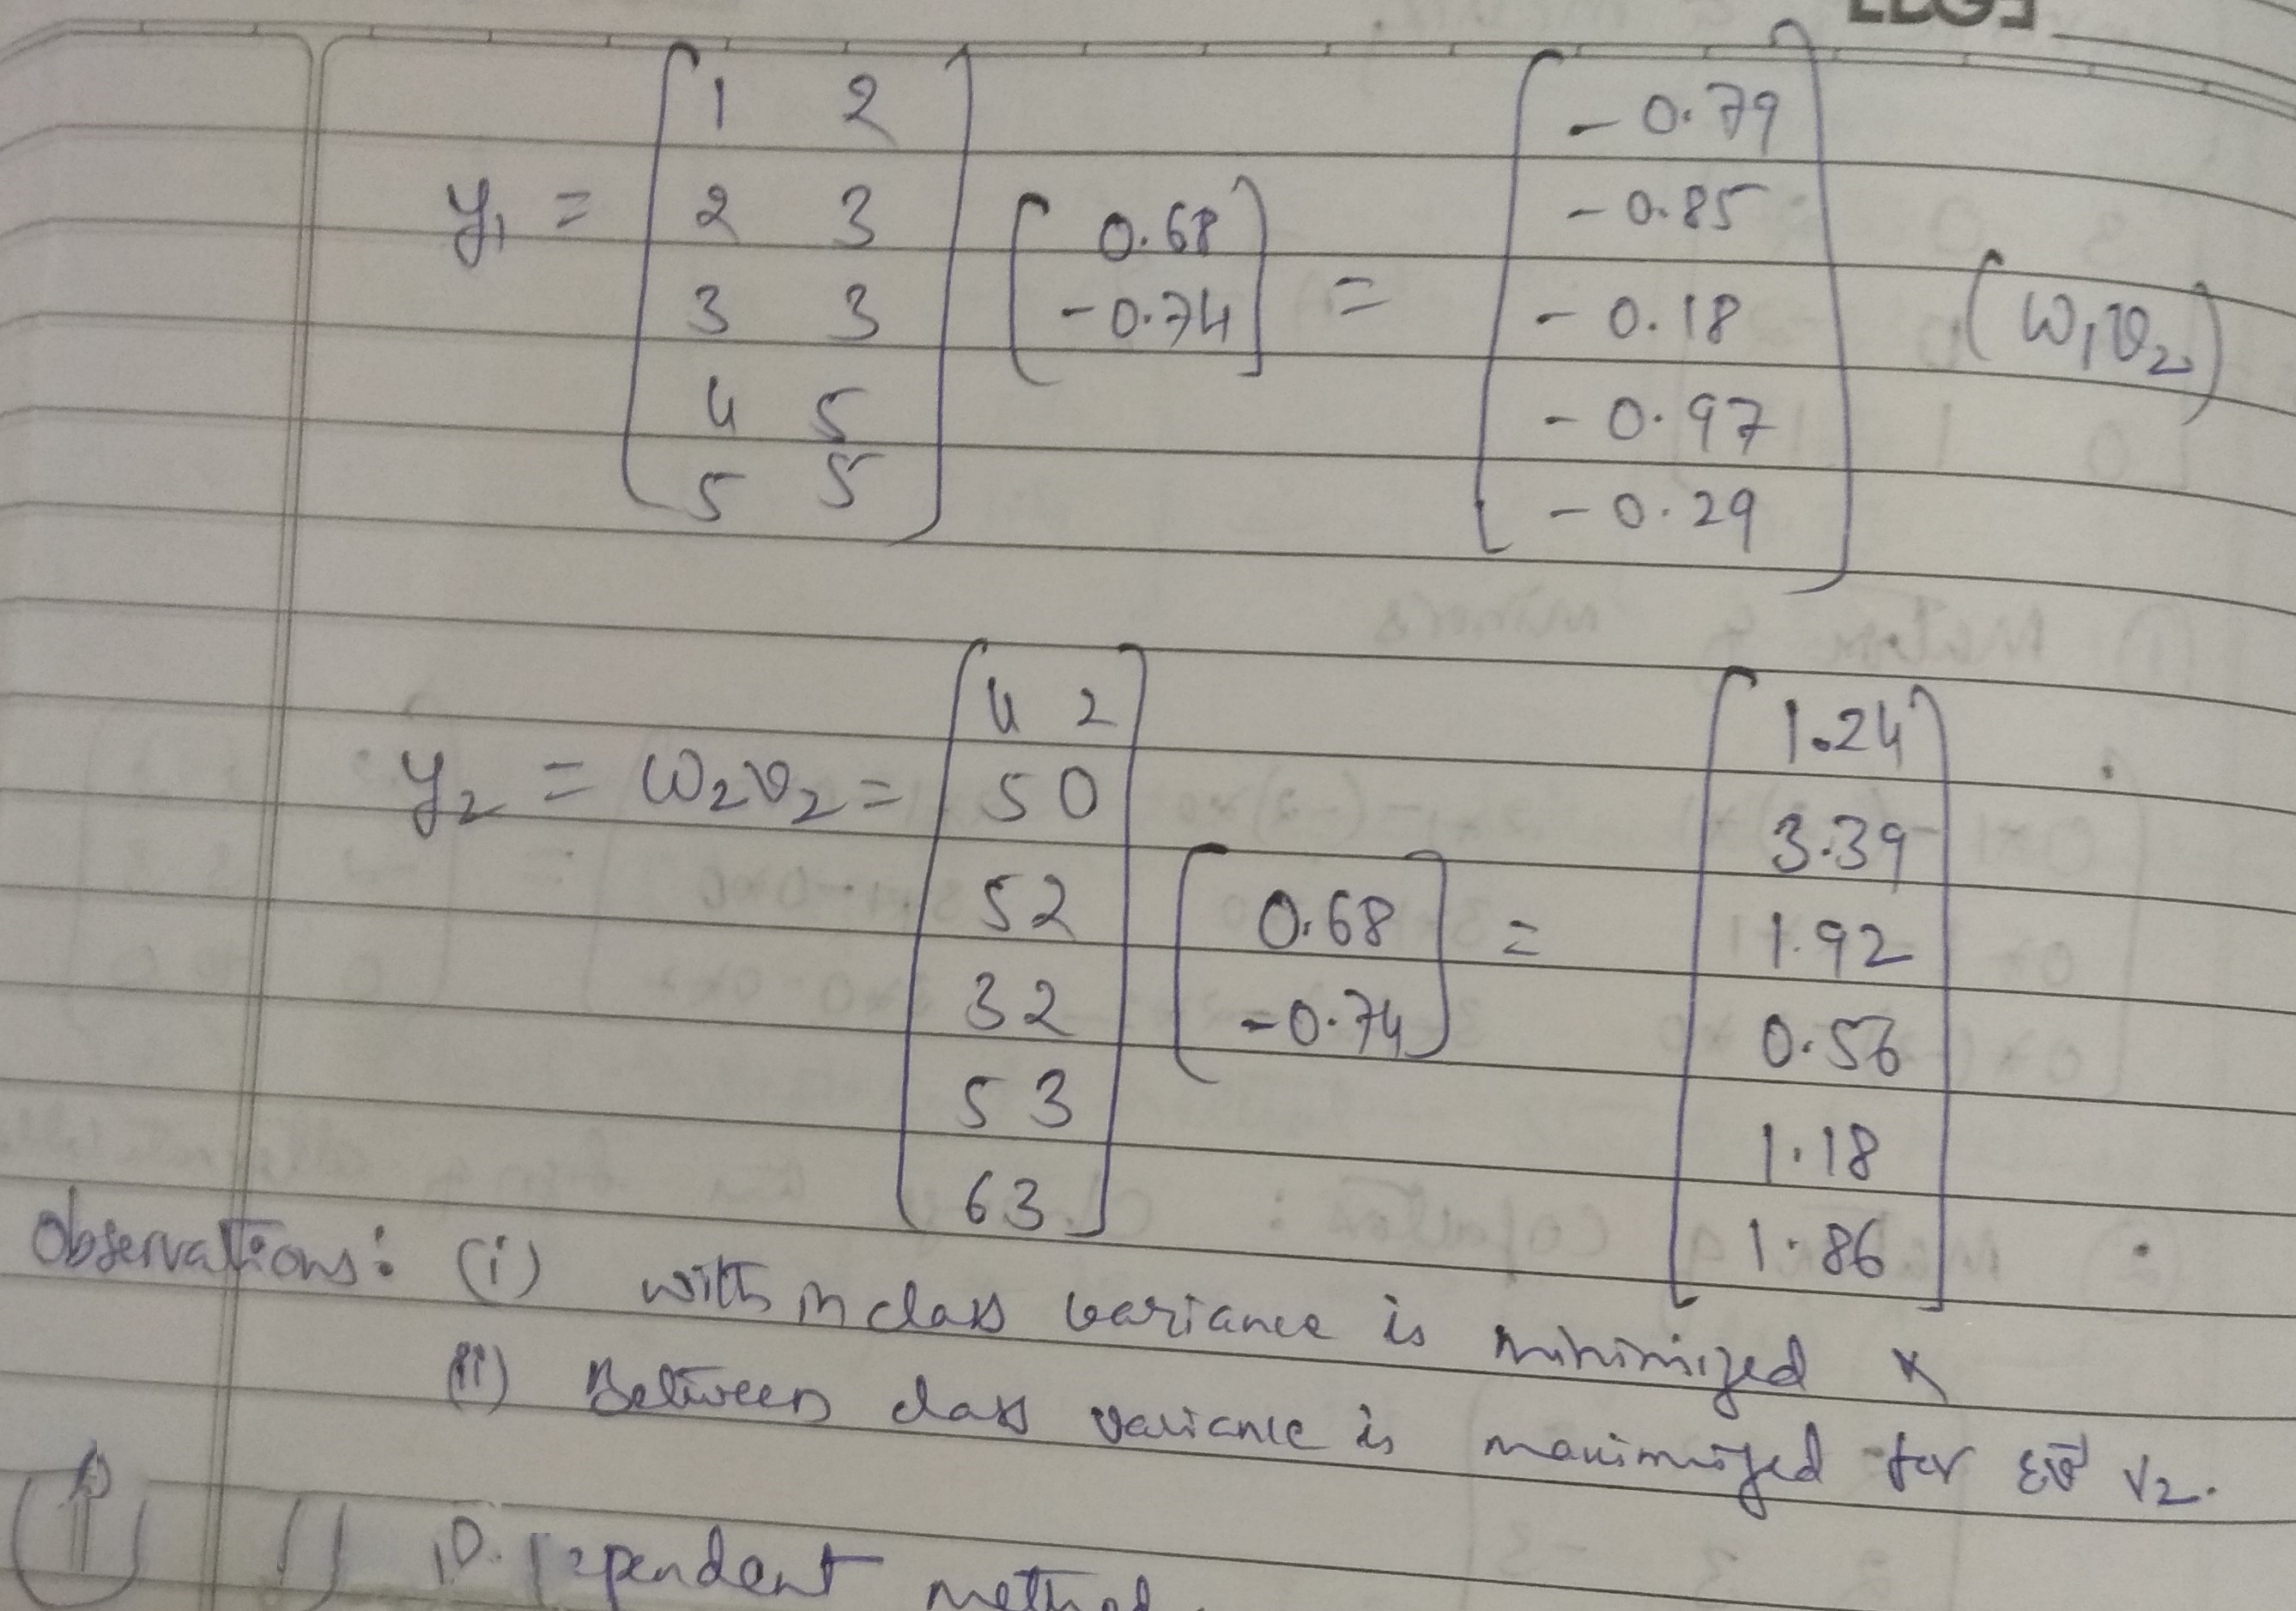 y₁ = [1 2; 2 3; 3 3; 4 5; 5 5] [0.68; -0.74] = [-0.79; -0.85; -0.18; -0.97; -0.29] (ω₁v₂)
y₂ = ω₂v₂ = [4 2; 5 0; 5 2; 3 2; 5 3; 6 3] [0.68; -0.74] = [1.24; 3.39; 1.92; 0.56; 1.18; 1.86]
Observations: (i) within class variance is minimized &
(ii) Between class variance is maximized for EV V₂.
method